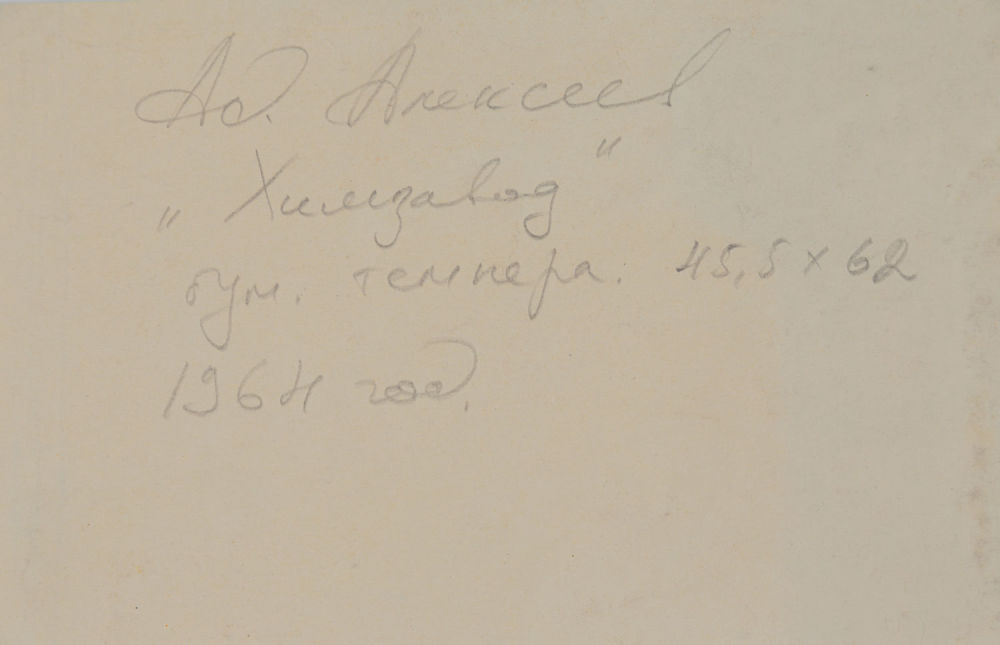 Ад. Алексеев
„Химзавод"
бум. темпера. 45,5 x 62
1964 год.